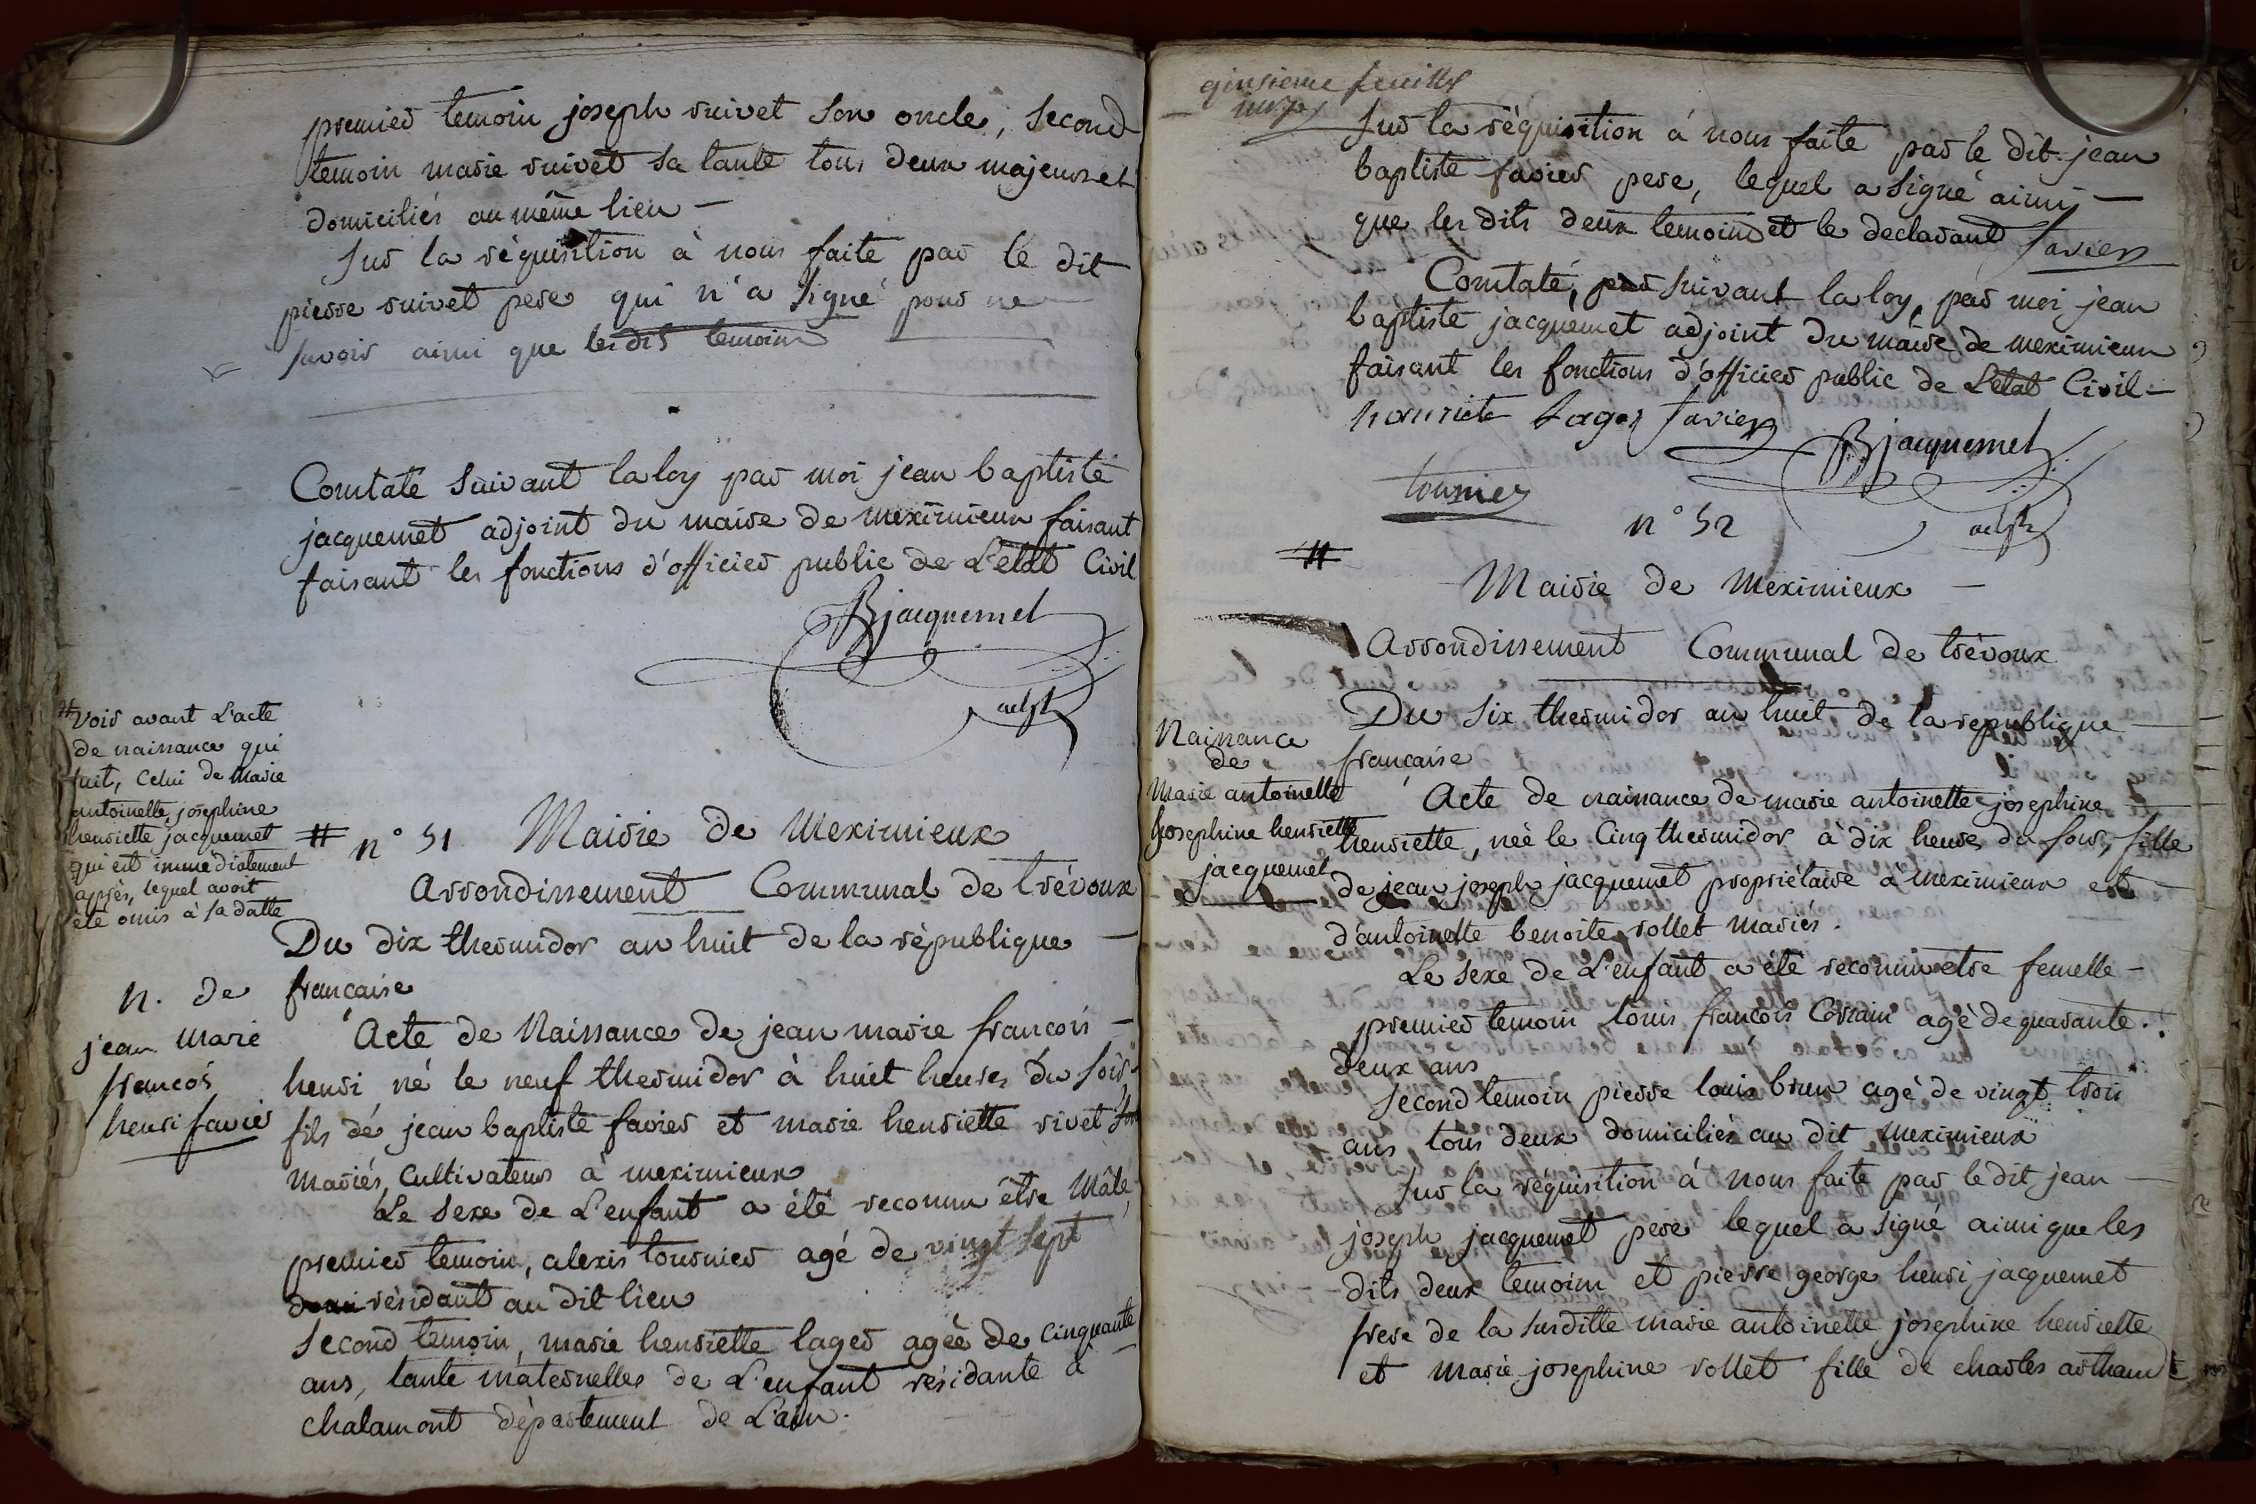 premier temoin joseph ruivet son oncle, second
temoin marie ruivet sa tante tous deux majeurs et
domiciliés au même lieu —
Sur la réquisition à nous faite par le dit
pierre ruivet pere qui n'a signé pour ne
savoir ainsi que lesdits temoins
Constaté suivant la loy par moi jean baptiste
jacquemet adjoint du maire de meximieux faisant
faisant les fonctions d'officier public de L'état Civil
Bjacquemet
adjt
# Voir avant L'acte
de naissance qui
suit, Celui de marie
antoinette josephine
henriette jacquemet
qui est immediatement
après, lequel avoit
été omis à sa datte
# n° 51 Mairie de Meximieux
Arrondissement Communal de trévoux
Du dix thermidor an huit de la république —
française
N. de
jean Marie
francois
henri favier
Acte de Naissance de jean marie francois —
henri, né le neuf thermidor à huit heures du soir
fils de jean baptiste favier et marie henriette rivet
mariés, Cultivateurs à meximieux
Le sexe de L'enfant a été reconnu être Mâle
premier temoin, alexis tournier agé de vingt sept
résidant au dit lieu
Second temoin, marie henriette lager agée de Cinquante
ans, tante maternelles de L'enfant résidante à
chalamont département de L'ain.
qinsieme feuillet
Sur la réquisition à nous faite par le dit jean
baptiste favier pere, lequel a signé ainsi —
que les dits deux temoins et le declarant favier
Constaté, par suivant la loy, par moi jean
baptiste jacquemet adjoint du maire de meximieux
faisant les fonctions d'officier public de L'état Civil —
henriete Lager favier
Bjacquemet
tournier
adjt
n° 52
#
Mairie de Meximieux —
Arrondissement Communal de trévoux
Du Six thermidor an huit de la republique —
française
Naissance
de
Marie antoinette
josephine henriette
jacquemet
Acte de naissance de marie antoinette josephine
henriette, née le Cinq thermidor à dix heures du soir, fille
de jean joseph jacquemet propriétaire à meximieux et —
d'antoinette benoite rollet mariés.
Le sexe de L'enfant a été reconnu etre femelle —
premier temoin louis françois agé de quarante
deux ans
Second temoin pierre louis brun agé de vingt trois
ans tous deux domiciliés au dit meximieux
Sur la réquisition à nous faite par le dit jean —
joseph jacquemet pere lequel a signé ainsi que les
dits deux temoins et pierre george henri jacquemet
frere de la susditte marie antoinette josephine henriette
et marie josephine rollet fille de charles